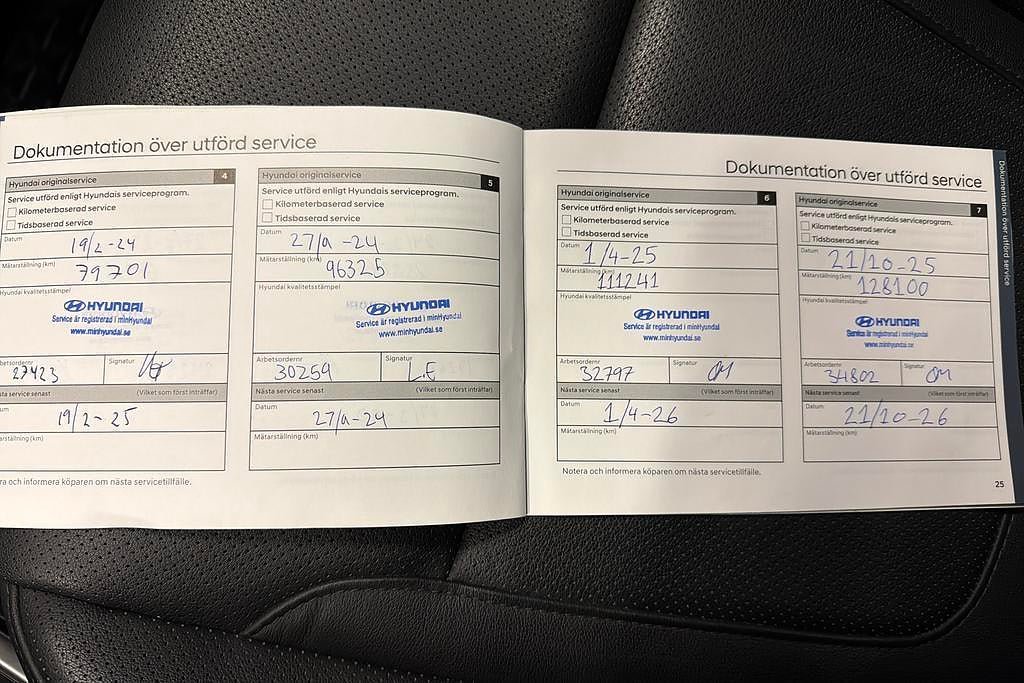 Dokumentation över utförd service
Hyundai originalservice 4
Service utförd enligt Hyundais serviceprogram.
Kilometerbaserad service
Tidsbaserad service
Datum
19/2-24
Mätarställning (km)
79701
Hyundai kvalitetsstämpel
HYUNDAI
Service är registrerad i minHyundai
www.minhyundai.se
Arbetsordernr Signatur
27423
Nästa service senast (Vilket som först inträffar)
Datum
19/2-25
Mätarställning (km)
Notera och informera köparen om nästa servicetillfälle.
Hyundai originalservice 5
Service utförd enligt Hyundais serviceprogram.
Kilometerbaserad service
Tidsbaserad service
Datum
-24
Mätarställning (km)
96325
Hyundai kvalitetsstämpel
HYUNDAI
Service är registrerad i minHyundai
www.minhyundai.se
Arbetsordernr Signatur
30259 L.E
Nästa service senast (Vilket som först inträffar)
Datum
-24
Mätarställning (km)
Dokumentation över utförd service
Hyundai originalservice 6
Service utförd enligt Hyundais serviceprogram.
Kilometerbaserad service
Tidsbaserad service
Datum
1/4-25
Mätarställning (km)
111241
Hyundai kvalitetsstämpel
HYUNDAI
Service är registrerad i minHyundai
www.minhyundai.se
Arbetsordernr Signatur
32797
Nästa service senast (Vilket som först inträffar)
Datum
1/4-26
Mätarställning (km)
Notera och informera köparen om nästa servicetillfälle.
Hyundai originalservice 7
Service utförd enligt Hyundais serviceprogram.
Kilometerbaserad service
Tidsbaserad service
Datum
21/10-25
Mätarställning (km)
128100
Hyundai kvalitetsstämpel
HYUNDAI
Service är registrerad i minHyundai
www.minhyundai.se
Arbetsordernr Signatur
34802
Nästa service senast (Vilket som först inträffar)
Datum
21/10-26
Mätarställning (km)
25
Dokumentation över utförd service